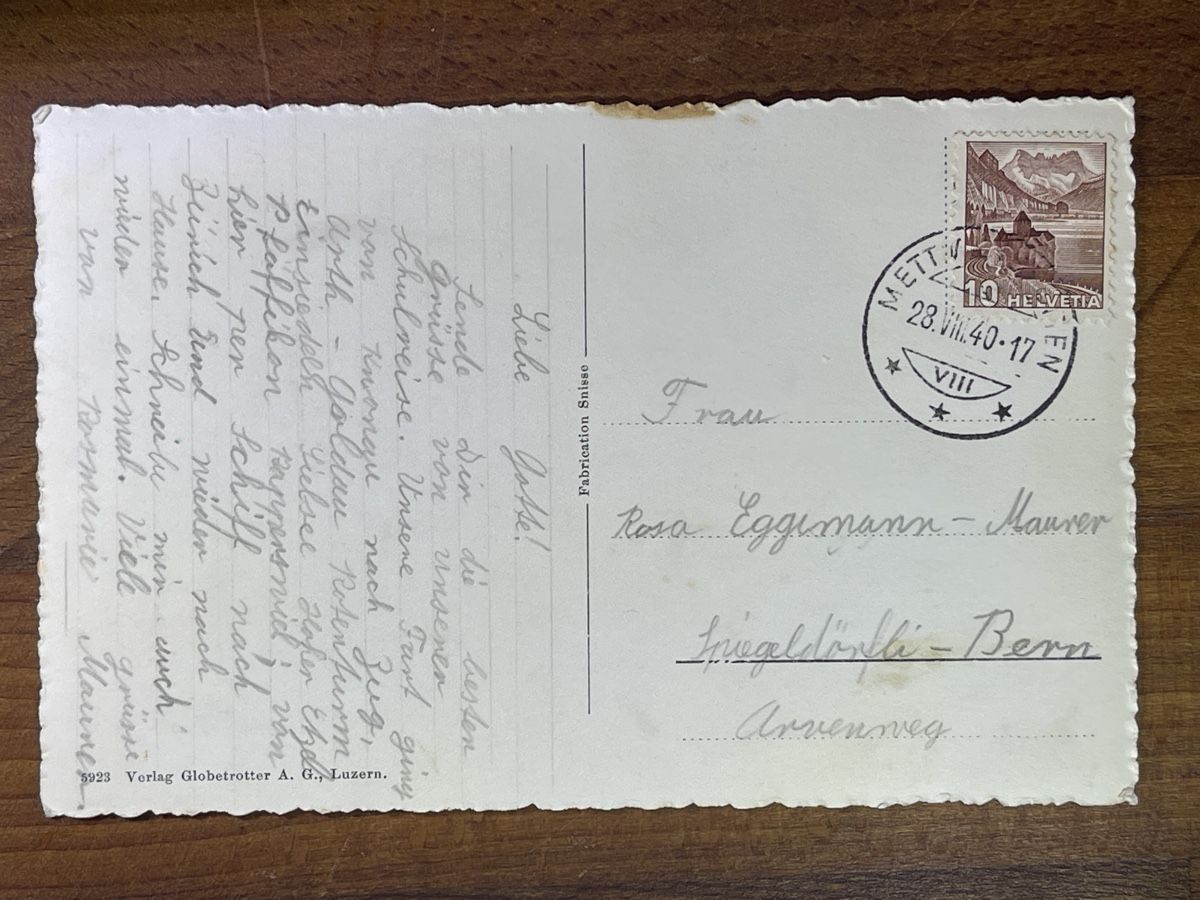 Liebe Gotte!
Sende Dir die besten
Grüsse von unserer
Schulreise. Unsere Fart ging
von Knonau nach Zug,
Arth - Goldau Rotenturm
Einsiedeln Hoher Etzel
Pfäffikon Rapperswil, von
hier per Schiff nach
Zürich Und wieder nach
Hause. Schreib mir auch
wieder einmal. Viele grüsse
von Rosmarie Maurer.
5923 Verlag Globetrotter A. G., Luzern.
Fabrication Suisse
10 HELVETIA
METTM TTEN
28.VIII.40·17
VIII
Frau
Rosa Eggimann - Maurer
Spiegeldörfli - Bern
Arvenweg